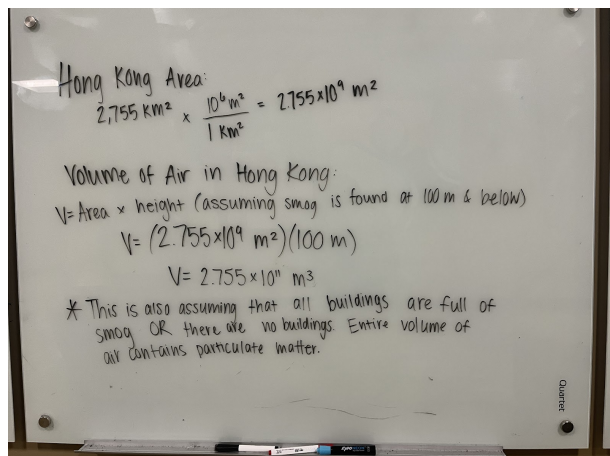 Hong Kong Area:
2,755 km² × 10⁶ m² / 1 km² = 2.755×10⁹ m²
Volume of Air in Hong Kong:
V= Area × height (assuming smog is found at 100 m & below)
V= (2.755×10⁹ m²)(100 m)
V= 2.755×10¹¹ m³
* This is also assuming that all buildings are full of
smog OR there are no buildings. Entire volume of
air contains particulate matter.
Quartet